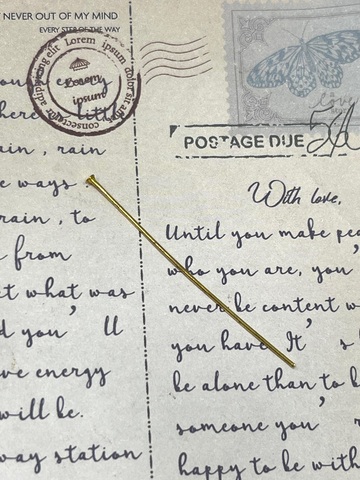 NEVER OUT OF MY MIND
EVERY STEP OF THE WAY
Lorem ipsum dolor sit amet
consectetur adipiscing elit
Lorem
ipsum
POSTAGE DUE
love
little
ain, rain
e ways
rain, to
from
t what was
d you' ll
ve energy
will be.
way station
With love,
Until you make pea
who you are, you'
never be content w
you have It' s
be alone than to b
someone you' r
happy to be with